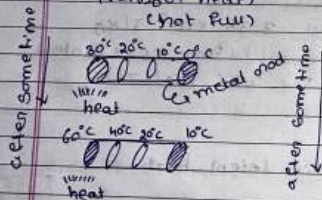 (not full)
after sometime
30°C 20°C 10°C 0°C
metal rod
heat
60°C 40°C 20°C 10°C
heat
after sometime